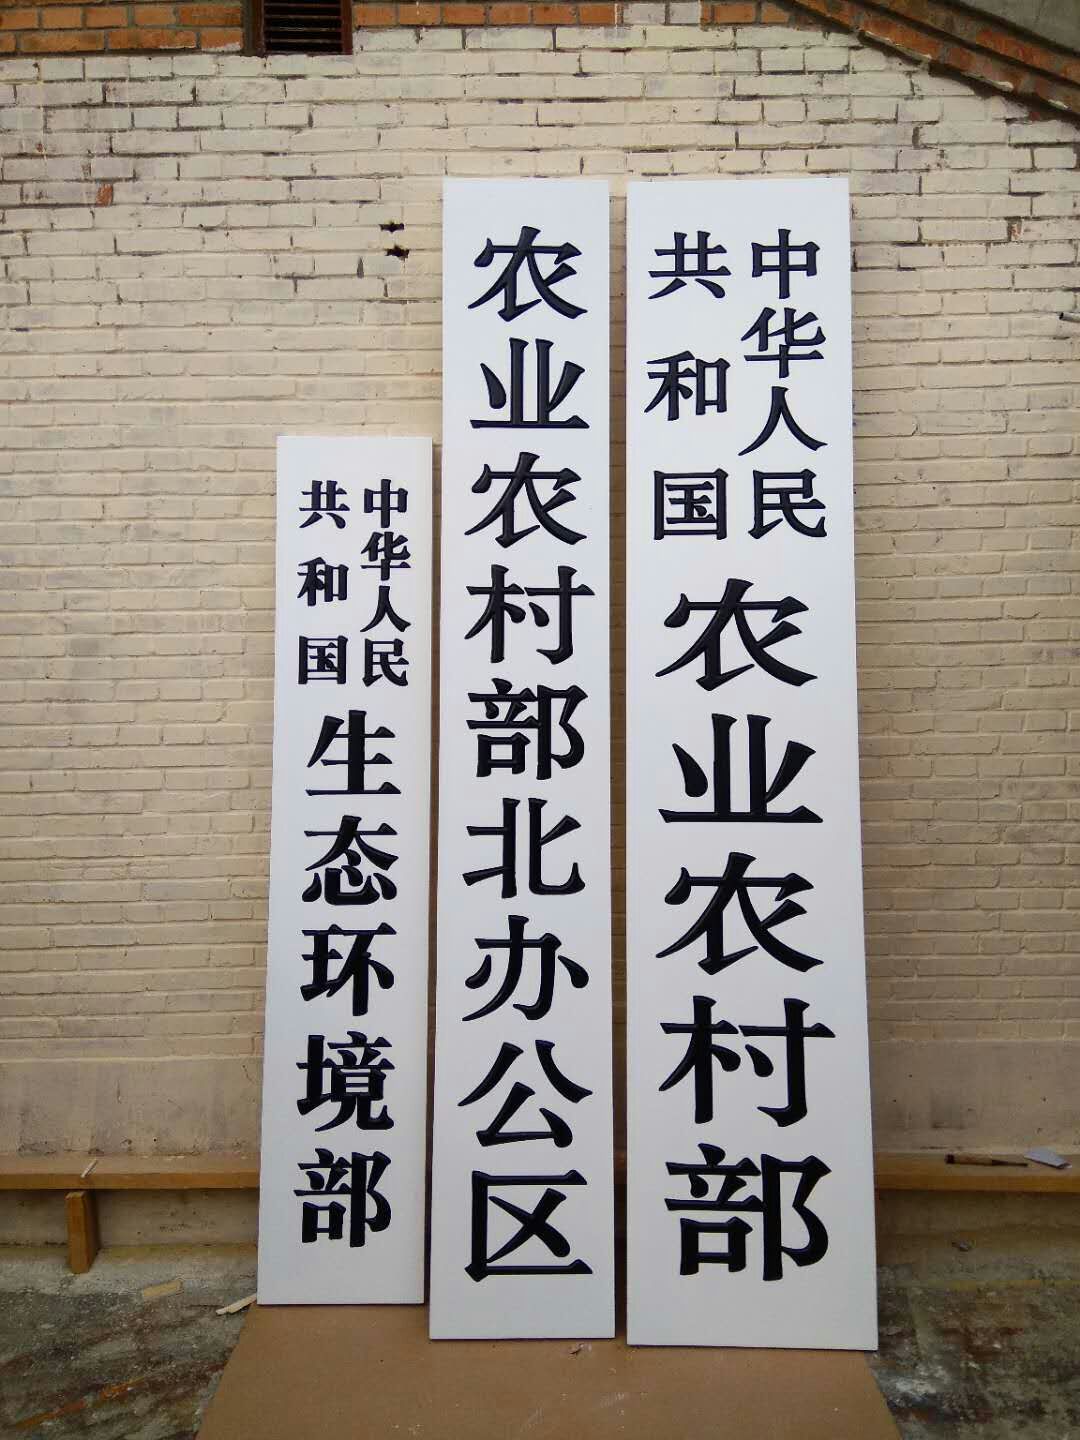 中华人民
共和国
农业农村部
农业农村部北办公区
中华人民
共和国
生态环境部